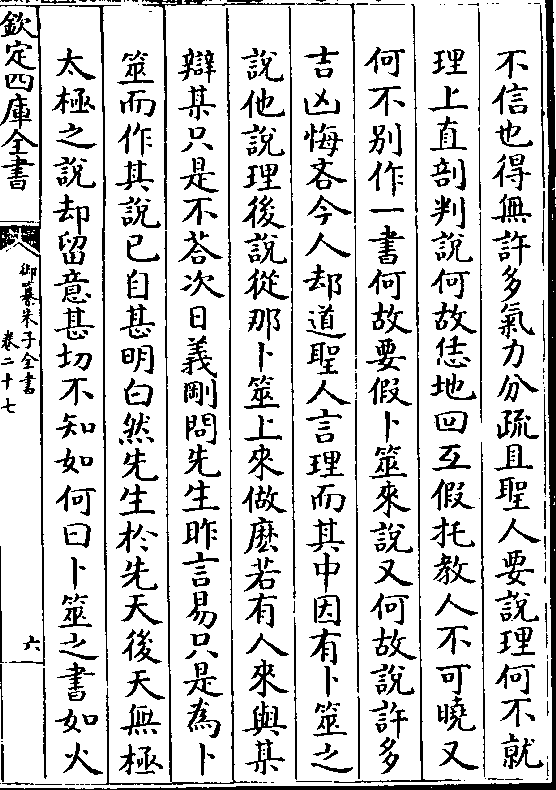 不信也得無許多氣力分疏且聖人要說理何不就
理上直剖判說何故恁地回互假托教人不可曉又
何不别作一書何故要假卜筮來說又何故說許多
吉凶悔吝今人却道聖人言理而其中因有卜筮之
說他說理後說從那卜筮上來做麽若有人來與某
辯某只是不荅次日義剛問先生昨言易只是為卜
筮而作其說已自甚明白然先生於先天後天無極
太極之說却留意甚切不知如何曰卜筮之書如火
欽定四庫全書
御纂朱子全書
卷二十七
六